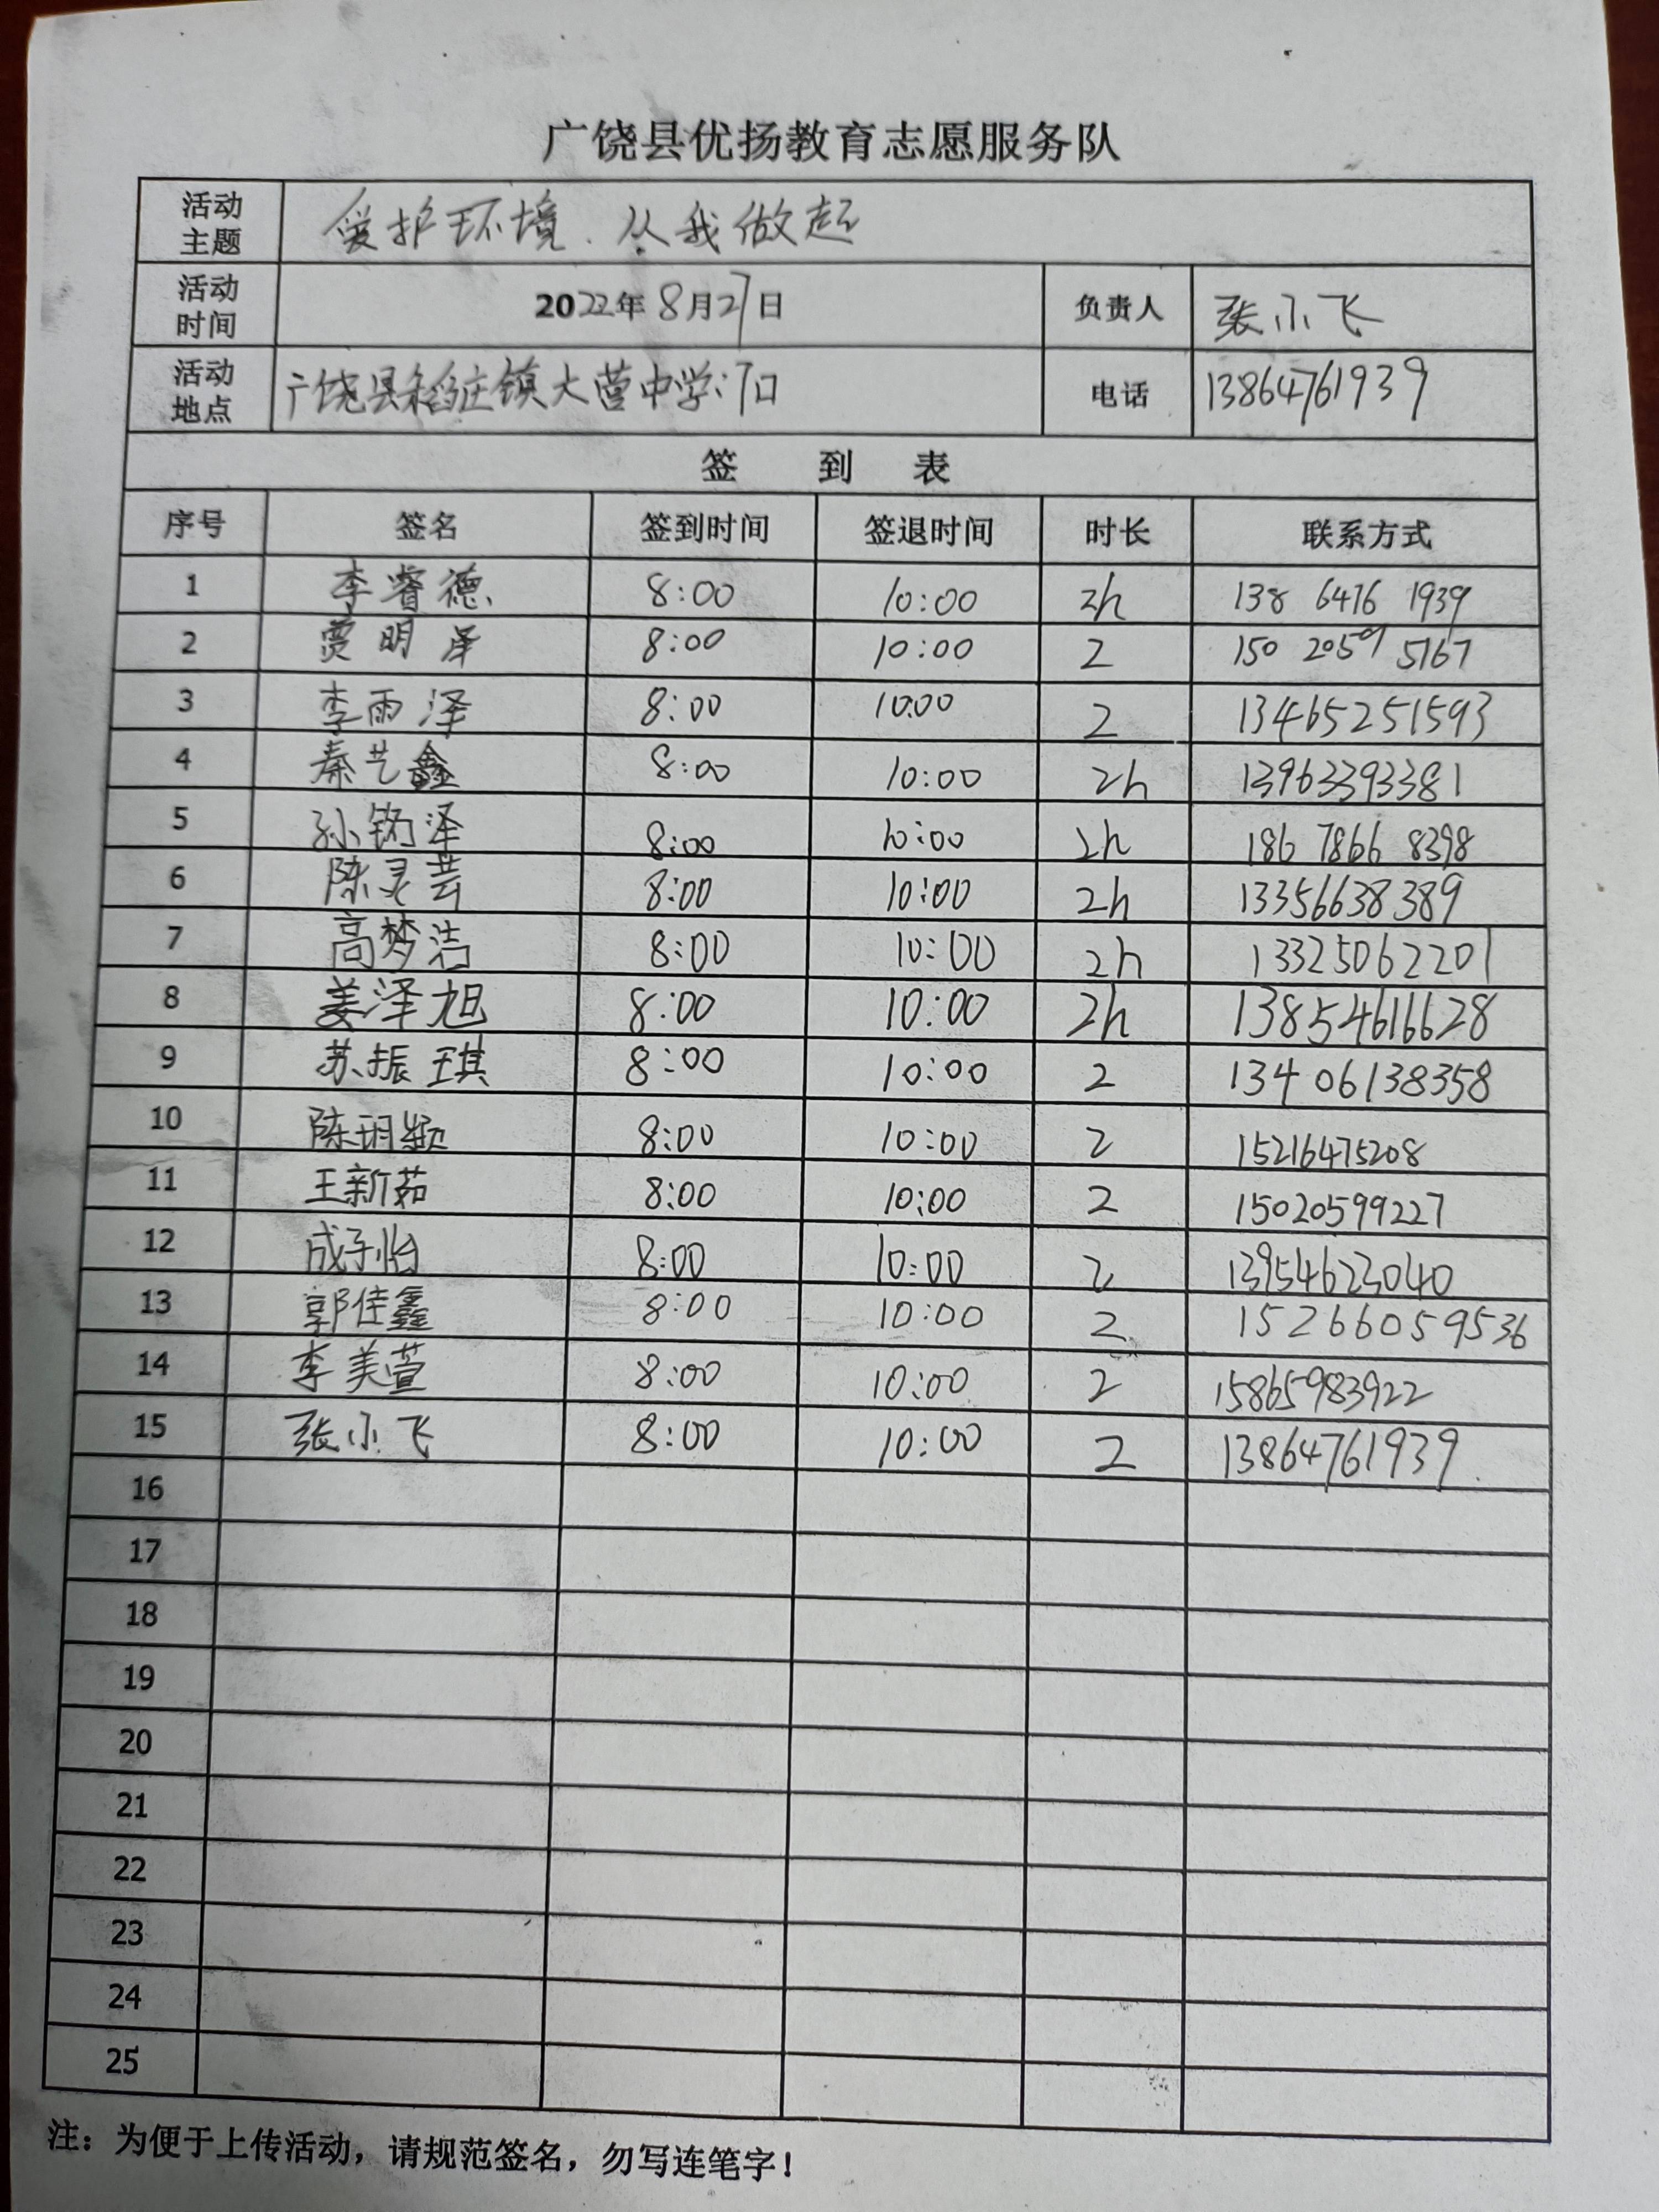 广饶县优扬教育志愿服务队
活动主题 爱护环境、从我做起
活动时间 2022年8月27日 负责人 张小飞
活动地点 广饶县稻庄镇大营中学门口 电话 13864761939
签 到 表
序号 签名 签到时间 签退时间 时长 联系方式
1 李睿德 8:00 10:00 2h 138 6476 1939
2 贾明泽 8:00 10:00 2 150 2059 5167
3 李雨泽 8:00 10:00 2 13465251593
4 秦艺鑫 8:00 10:00 2h 13963393381
5 孙铭泽 8:00 10:00 2h 186 7866 8398
6 陈灵芸 8:00 10:00 2h 13356638389
7 高梦洁 8:00 10:00 2h 13325062201
8 姜泽旭 8:00 10:00 2h 13854616628
9 苏振琪 8:00 10:00 2 134 06138358
10 陈玥颖 8:00 10:00 2 15216475208
11 王新茹 8:00 10:00 2 15020599227
12 成子怡 8:00 10:00 2 13954623040
13 郭佳鑫 8:00 10:00 2 15266059536
14 李美萱 8:00 10:00 2 15865983922
15 张小飞 8:00 10:00 2 13864761939
16
17
18
19
20
21
22
23
24
25
注：为便于上传活动，请规范签名，勿写连笔字！